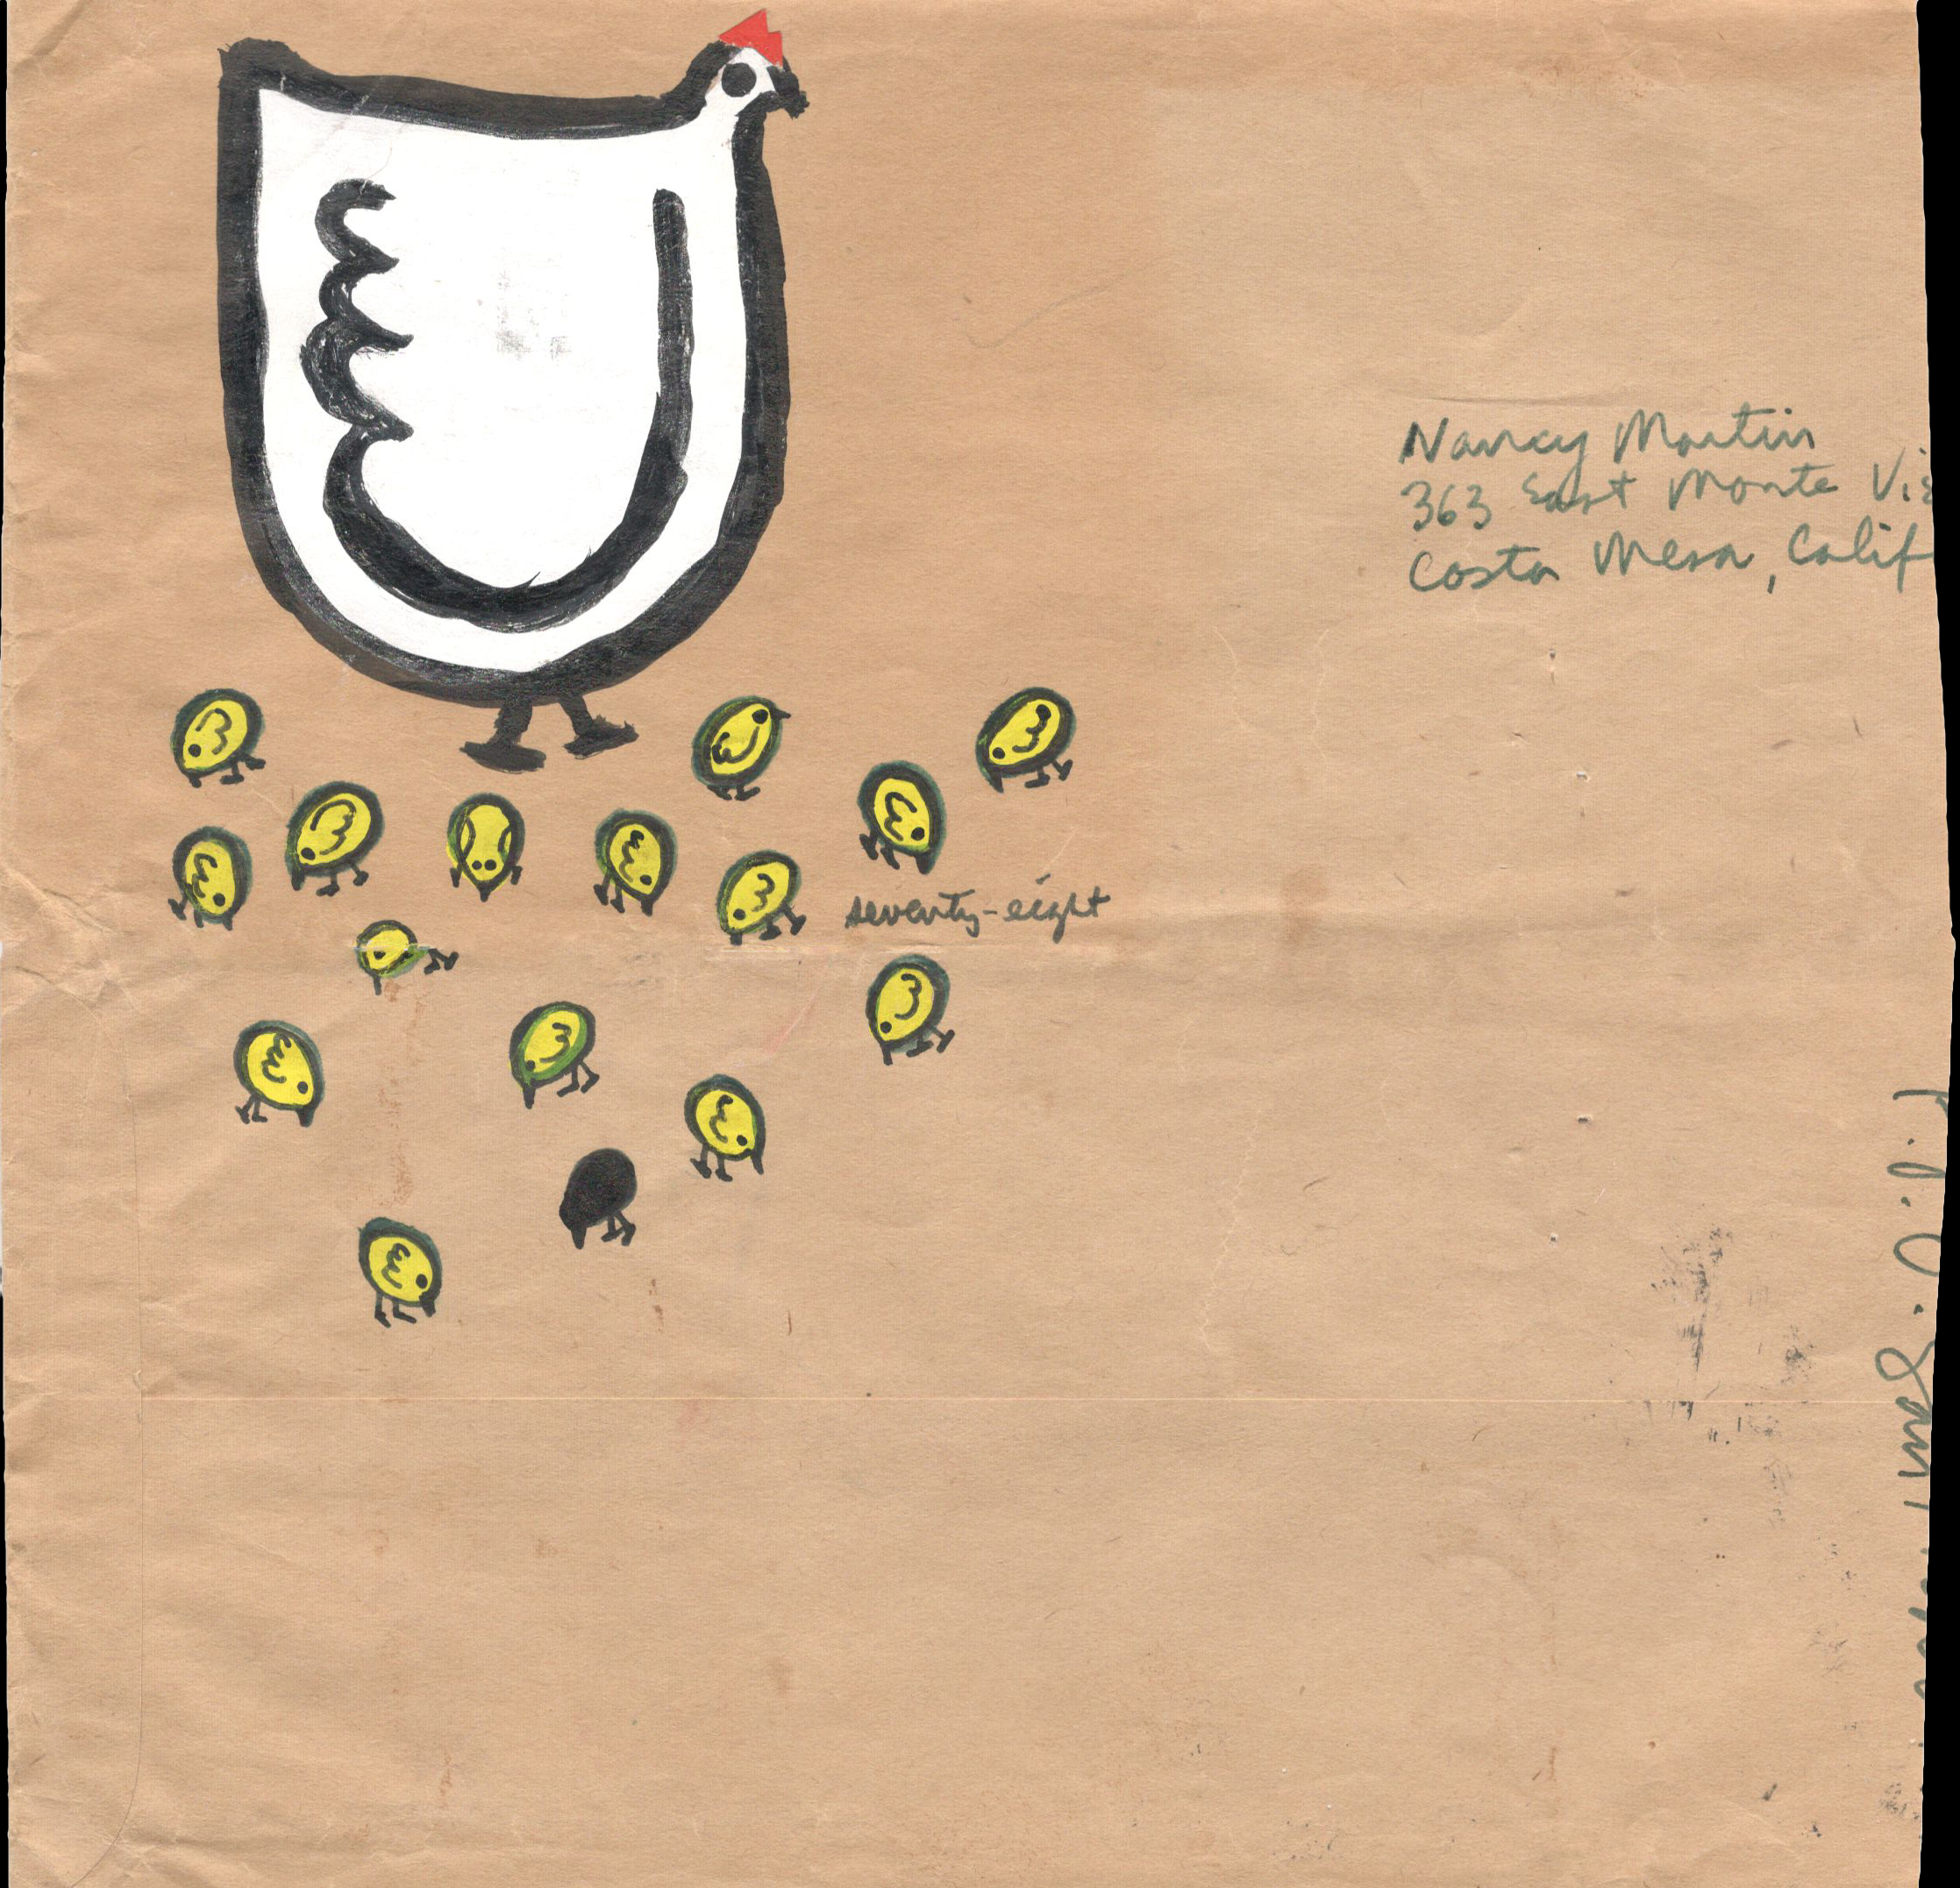 Nancy Martin
363 East Monte Vis
Costa Mesa, Calif
seventy-eight